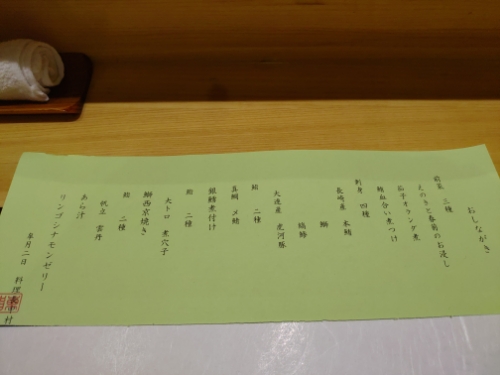 おしながき
前菜 三種
えのきと春菊のお浸し
茄子オランダ煮
鮪血合い煮つけ
刺身 四種
長崎産 本鮪
鰤
縞鯵
大遠産 虎河豚
鮨 二種
真鯛 〆鯖
銀鱈煮付け
鮨 二種
大トロ 煮穴子
鰤西京焼き
鮨 二種
帆立 雲丹
あら汁
リンゴシナモンゼリー
皐月二日 料理 村